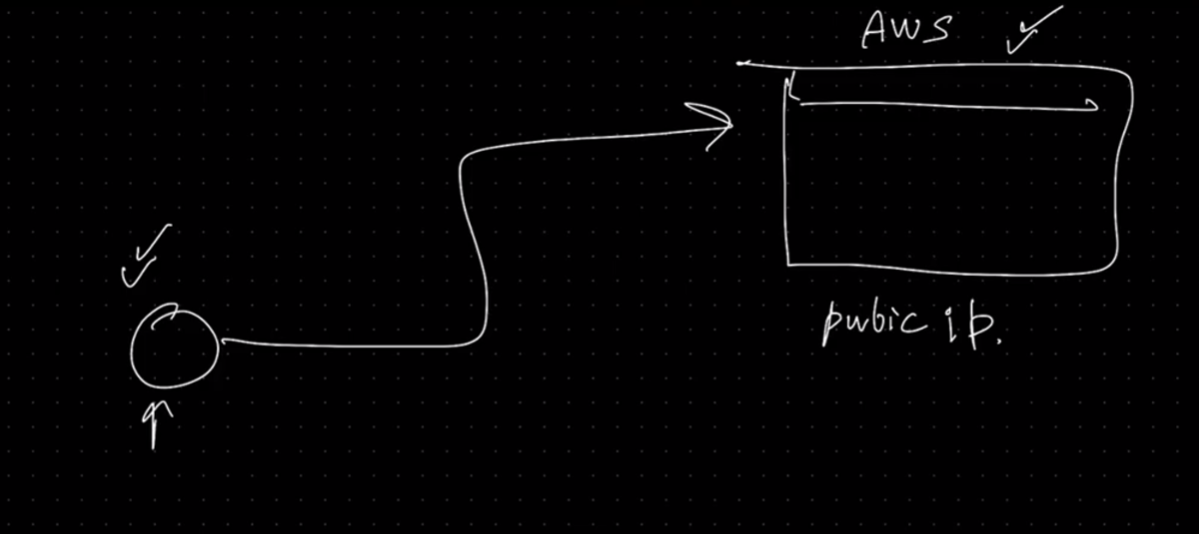 AWS
pubic ip.